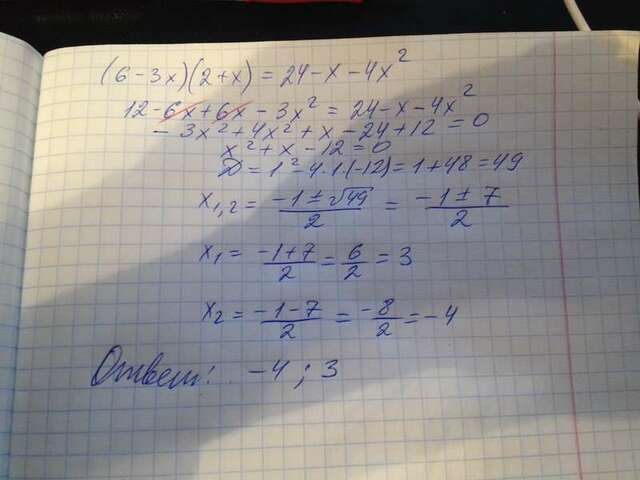 (6-3x)(2+x)=24-x-4x²
12-6x+6x-3x²=24-x-4x²
-3x²+4x²+x-24+12=0
x²+x-12=0
D=1²-4·1·(-12)=1+48=49
x₁,₂ = (-1±√49)/2 = (-1±7)/2
x₁ = (-1+7)/2 = 6/2 = 3
x₂ = (-1-7)/2 = -8/2 = -4
Ответ: -4; 3